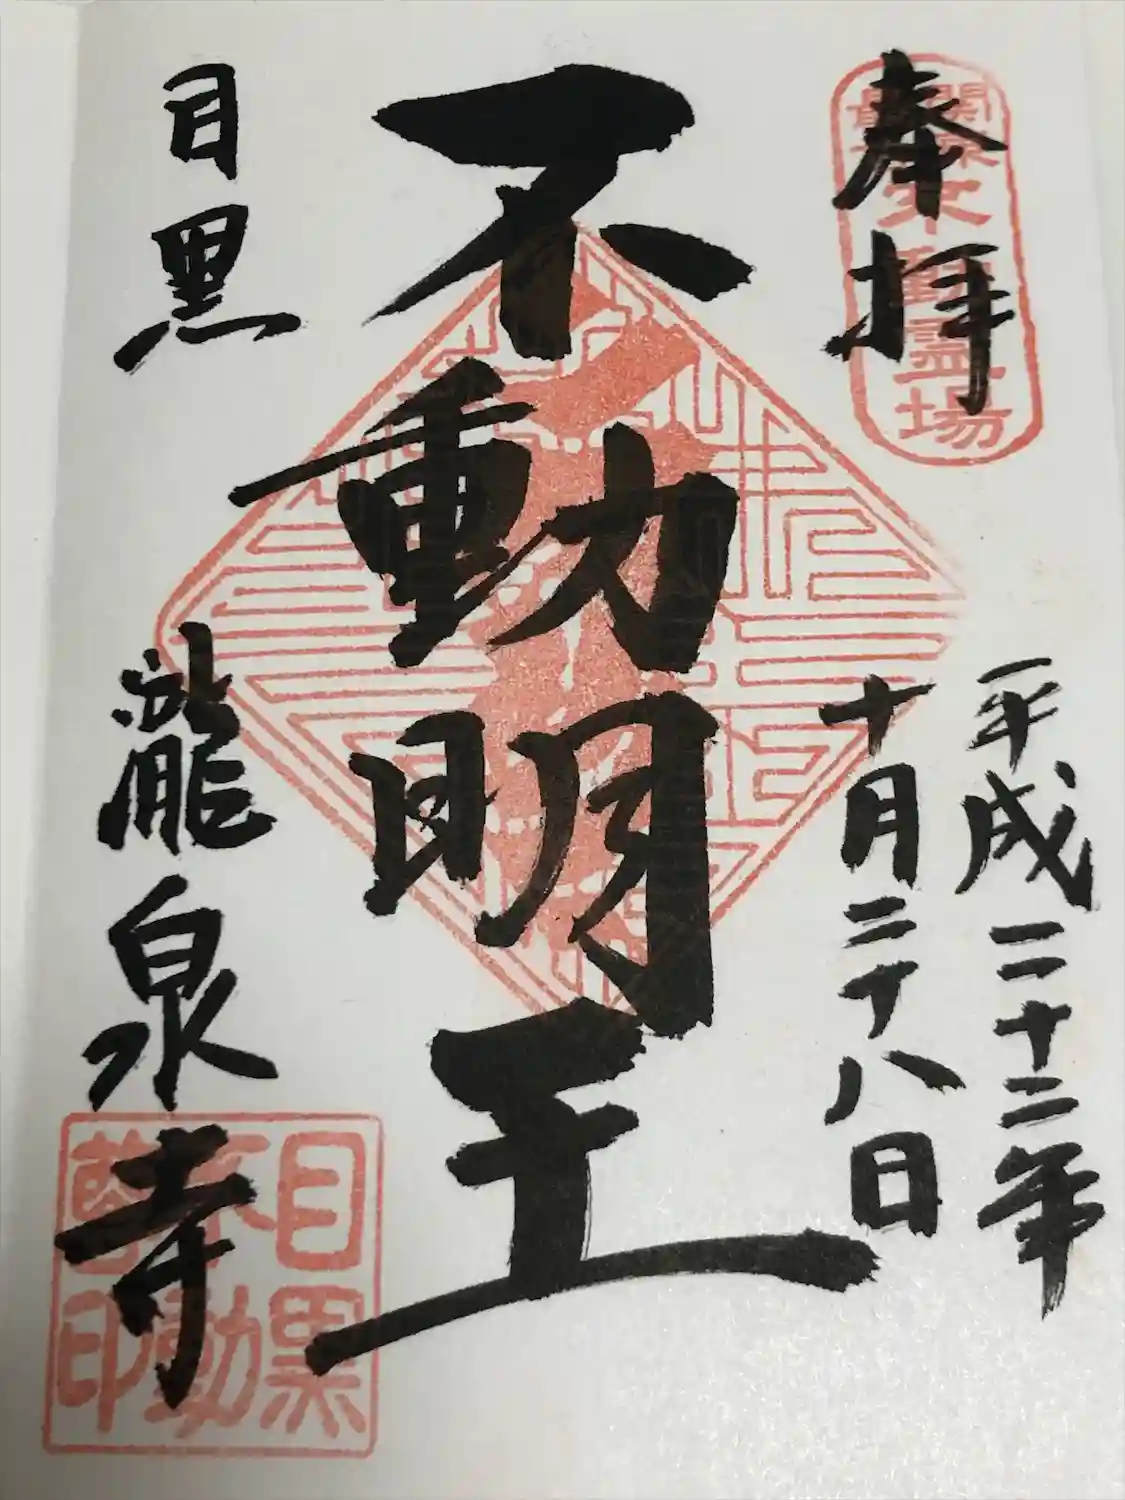 奉拝
関東
最古
不動霊場
平成二十二年
十月二十八日
不動明王
目黒
瀧泉寺
目黒
不動
尊印